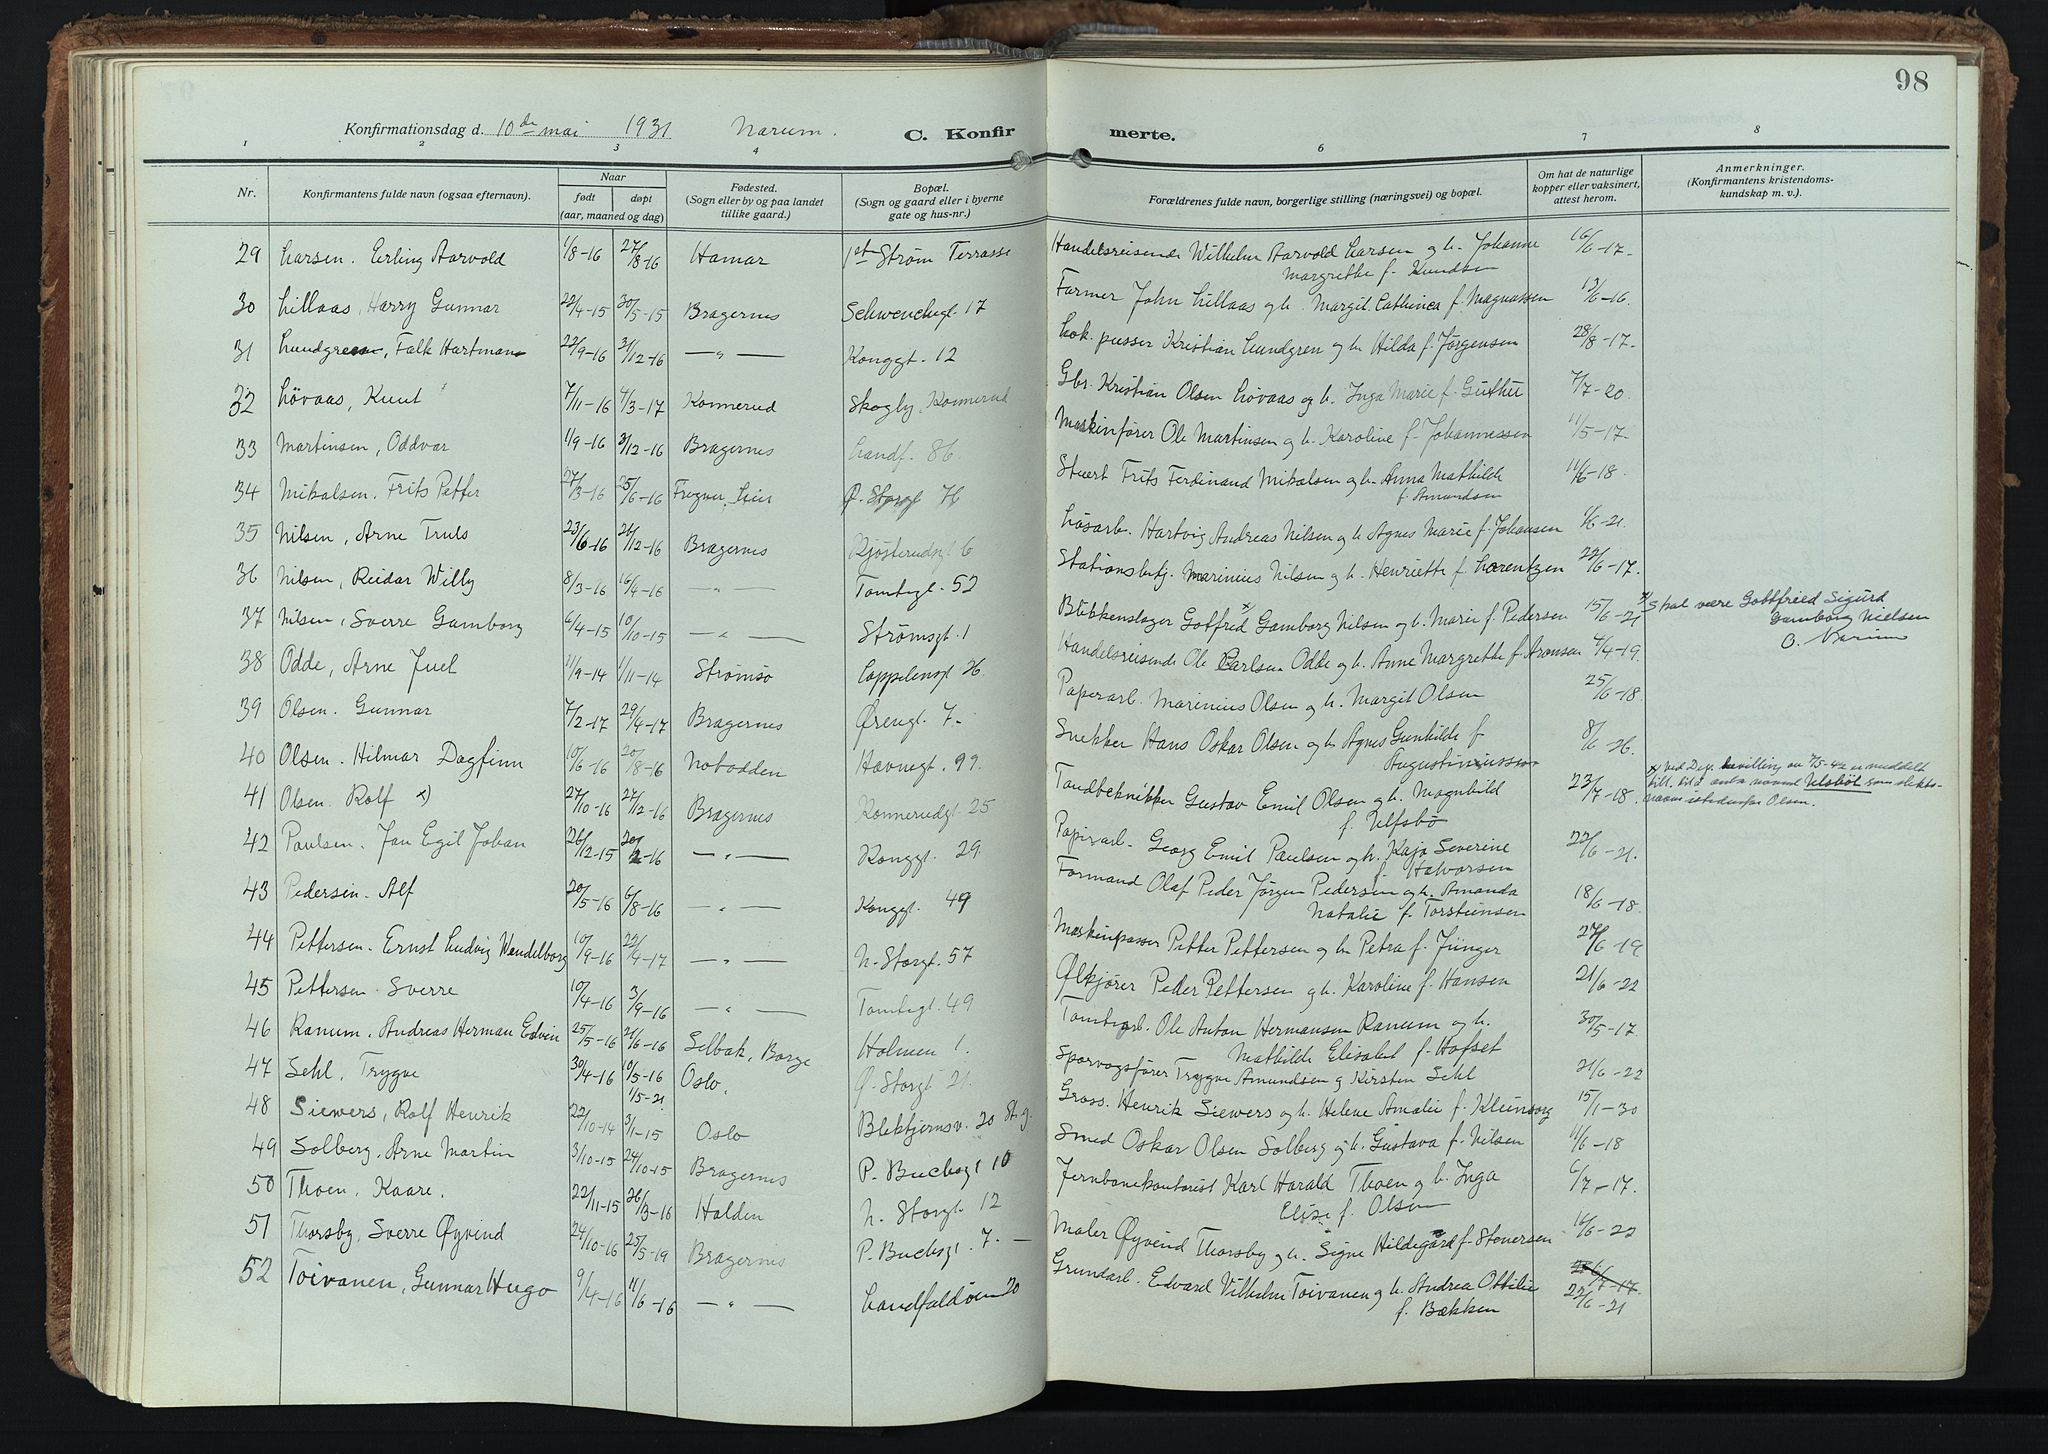 98
Konfirmationsdag d. 10de mai 1931 Narum. C. Konfirmerte.
1 2 3 4 6 7 8
Nr. Konfirmantens fulde navn (ogsaa efternavn). Naar født døpt (aar, maaned og dag) Fødested. (Sogn eller by og paa landet tillike gaard.) Bopæl. (Sogn og gaard eller i byerne gate og hus-nr.) Forældrenes fulde navn, borgerlige stilling (næringsvei) og bopæl. Om hat de naturlige kopper eller vaksinert, attest herom. Anmerkninger. (Konfirmantens kristendomskundskap m. v.).
29 Larsen. Erling Aarvold 1/8-16 27/8-16 Hamar 1st Strøm Terrasse Handelsreisende Wilhelm Aarvold Larsen og h. Johanne 16/6-17-
Margrethe f. Knudsen
30 Lillaas, Harry Gunnar 22/4-15 30/5-15 Bragernes Schwenckegt. 17 Farmer John Lillaas og h. Margit Cathinca f. Magnussen 13/6-16.
31 Lundgreen, Falk Hartman 22/9-16 31/12-16 — " — Konggt. 12 Lok. pusser Kristian Lundgren og h. Hilda f. Jørgensen 28/8-17-
32 Løvaas, Knut 7/11-16 4/3-17 Konnerud Skogly, Konnerud Gbr. Kristian Olsen Løvaas og h. Inga Marie f. Guthu 7/7-20.
33 Martinsen, Oddvar 1/9-16 3/12-16 Bragernes Landf. 86. Maskinfører Ole Martinsen og h. Karoline f. Johannessen 11/5-17-
34 Mikalsen. Frits Petter 27/3-16 25/6-16 Frogner, Lier Ø. Storgt 76 Stuert Frits Ferdinand Mikalsen og h. Anna Mathilde 11/6-18.
f. Amundsen
35 Nilsen, Arne Truls 23/6-16 26/12-16 Bragernes Kjøsterudsgt 6 Løsarb. Hartvig Andreas Nilsen og h Agnes Marie f. Johansen 1/6-21.
36 Nilsen, Reidar Willy 8/3-16 16/4-16 — " — Tomtegt. 52 Stationsbetj. Marinius Nilsen og h. Henriette f. Laurentzen 22/6-17.
37 Nilsen, Sverre Gamborg 6/4-15 10/10-15 — " — Strømsgt. 1 Blikkenslager Gotfred x Gamborg Nilsen og h. Marie f. Pedersen 15/6-21 x Skal være Gottfried Sigurd
Gamborg Nielsen
O. Narum
38 Odde, Arne Juel 11/9-14 1/11-14 Strømsø Cappelensgt 26. Handelsreisende Ole Carlsen Odde og h. Anne Margrethe f. Aronsen 4/4-19.
39 Olsen. Gunnar 7/2-17 29/4-17 Bragernes Ørengt. 7.- Papirarb. Marinius Olsen og h. Margit Olsen 25/6-18.
40 Olsen. Hilmar Dagfinn 10/6-16 20/8-16 Notodden Havnegt. 99. Snekker Hans Oskar Olsen og h Agnes Gunhilde f 8/6-26.
Augustiniussen
41 Olsen. Rolf x) 27/10-16 27/12-16 Bragernes Konnerudgt 25 Tandtekniker Gustav Emil Olsen og h. Magnhild 23/7-18. x) ved Dep. bevilling av 7/5-42 er meddelt
f. Ulfsbø till. til å anta navnet Ulsbøl som slekts-
navn istedenfor Olsen.
42 Paulsen. Jan Egil Johan 26/12-15 20/2-16 — " — Konggt. 29. Papirarb. Georg Emil Paulsen og h. Kaja Severine 22/6-21.
f Halvorsen
43 Pedersen. Alf 20/5-16 6/8-16 — " — Konggt. 49 Formand Olaf Peder Jørgen Pedersen og h. Amanda 18/6-18.
Natalie f. Torsteinsen
44 Pettersen. Ernst Ludvig Wendelborg 10/9-16 22/4-17 — " — N. Storgt. 57 Maskinpasser Petter Pettersen og h Petra f. Jünger 27/6-19
45 Pettersen Sverre 10/4-16 3/9-16 — " — Tomtegt. 49 Ølkjører Peder Pettersen og h. Karoline f. Hansen 21/6-22
46 Ranum. Andreas Herman Edvin 25/5-16 21/6-16 Selbak, Borge Holmen 1. Tomtearb. Ole Anton Hermansen Ranum og h. 30/5-17
Mathilde Elisabet f. Hofset
47 Sehl, Trygve 30/4-16 10/5-16 1/5-21 Oslo. Ø. Storgt 21. Sporvogsfører Trygve Amundsen og Kirsten Sehl 21/6-22
48 Siewers, Rolf Henrik 22/10-14 3/1-15 Oslo Blektjernsv. 20 St.g. Gross. Henrik Siewers og h. Helene Amalie f. Kleinborg 15/1-30
49 Solberg. Arne Martin 3/10-15 24/10-15 Bragernes P. Buchsgt 10 Smed Oskar Olsen Solberg og h. Gustava f. Nilsen 11/6-18
50 Thoen. Kaare. 22/11-15 26/3-16 Halden N. Storgt. 12 Jernbanekontorist Karl Harald Thoen og h. Inga 6/7-17.
Elise f. Olsen
51 Thorsby, Sverre Øyvind 24/10-16 25/5-19 Bragernes P. Buchsgt. 7.- Maler Øyvind Thorsby og h. Signe Hildegård f. Stenersen 16/6-23
52 Toivanen, Gunnar Hugo 9/4-16 11/6-16 — " — Landfaldøen 20 Grundarb. Edvard Vilhelm Toivanen og h. Andrea Ottilie 6/7-17
f. Bækken 22/6-21